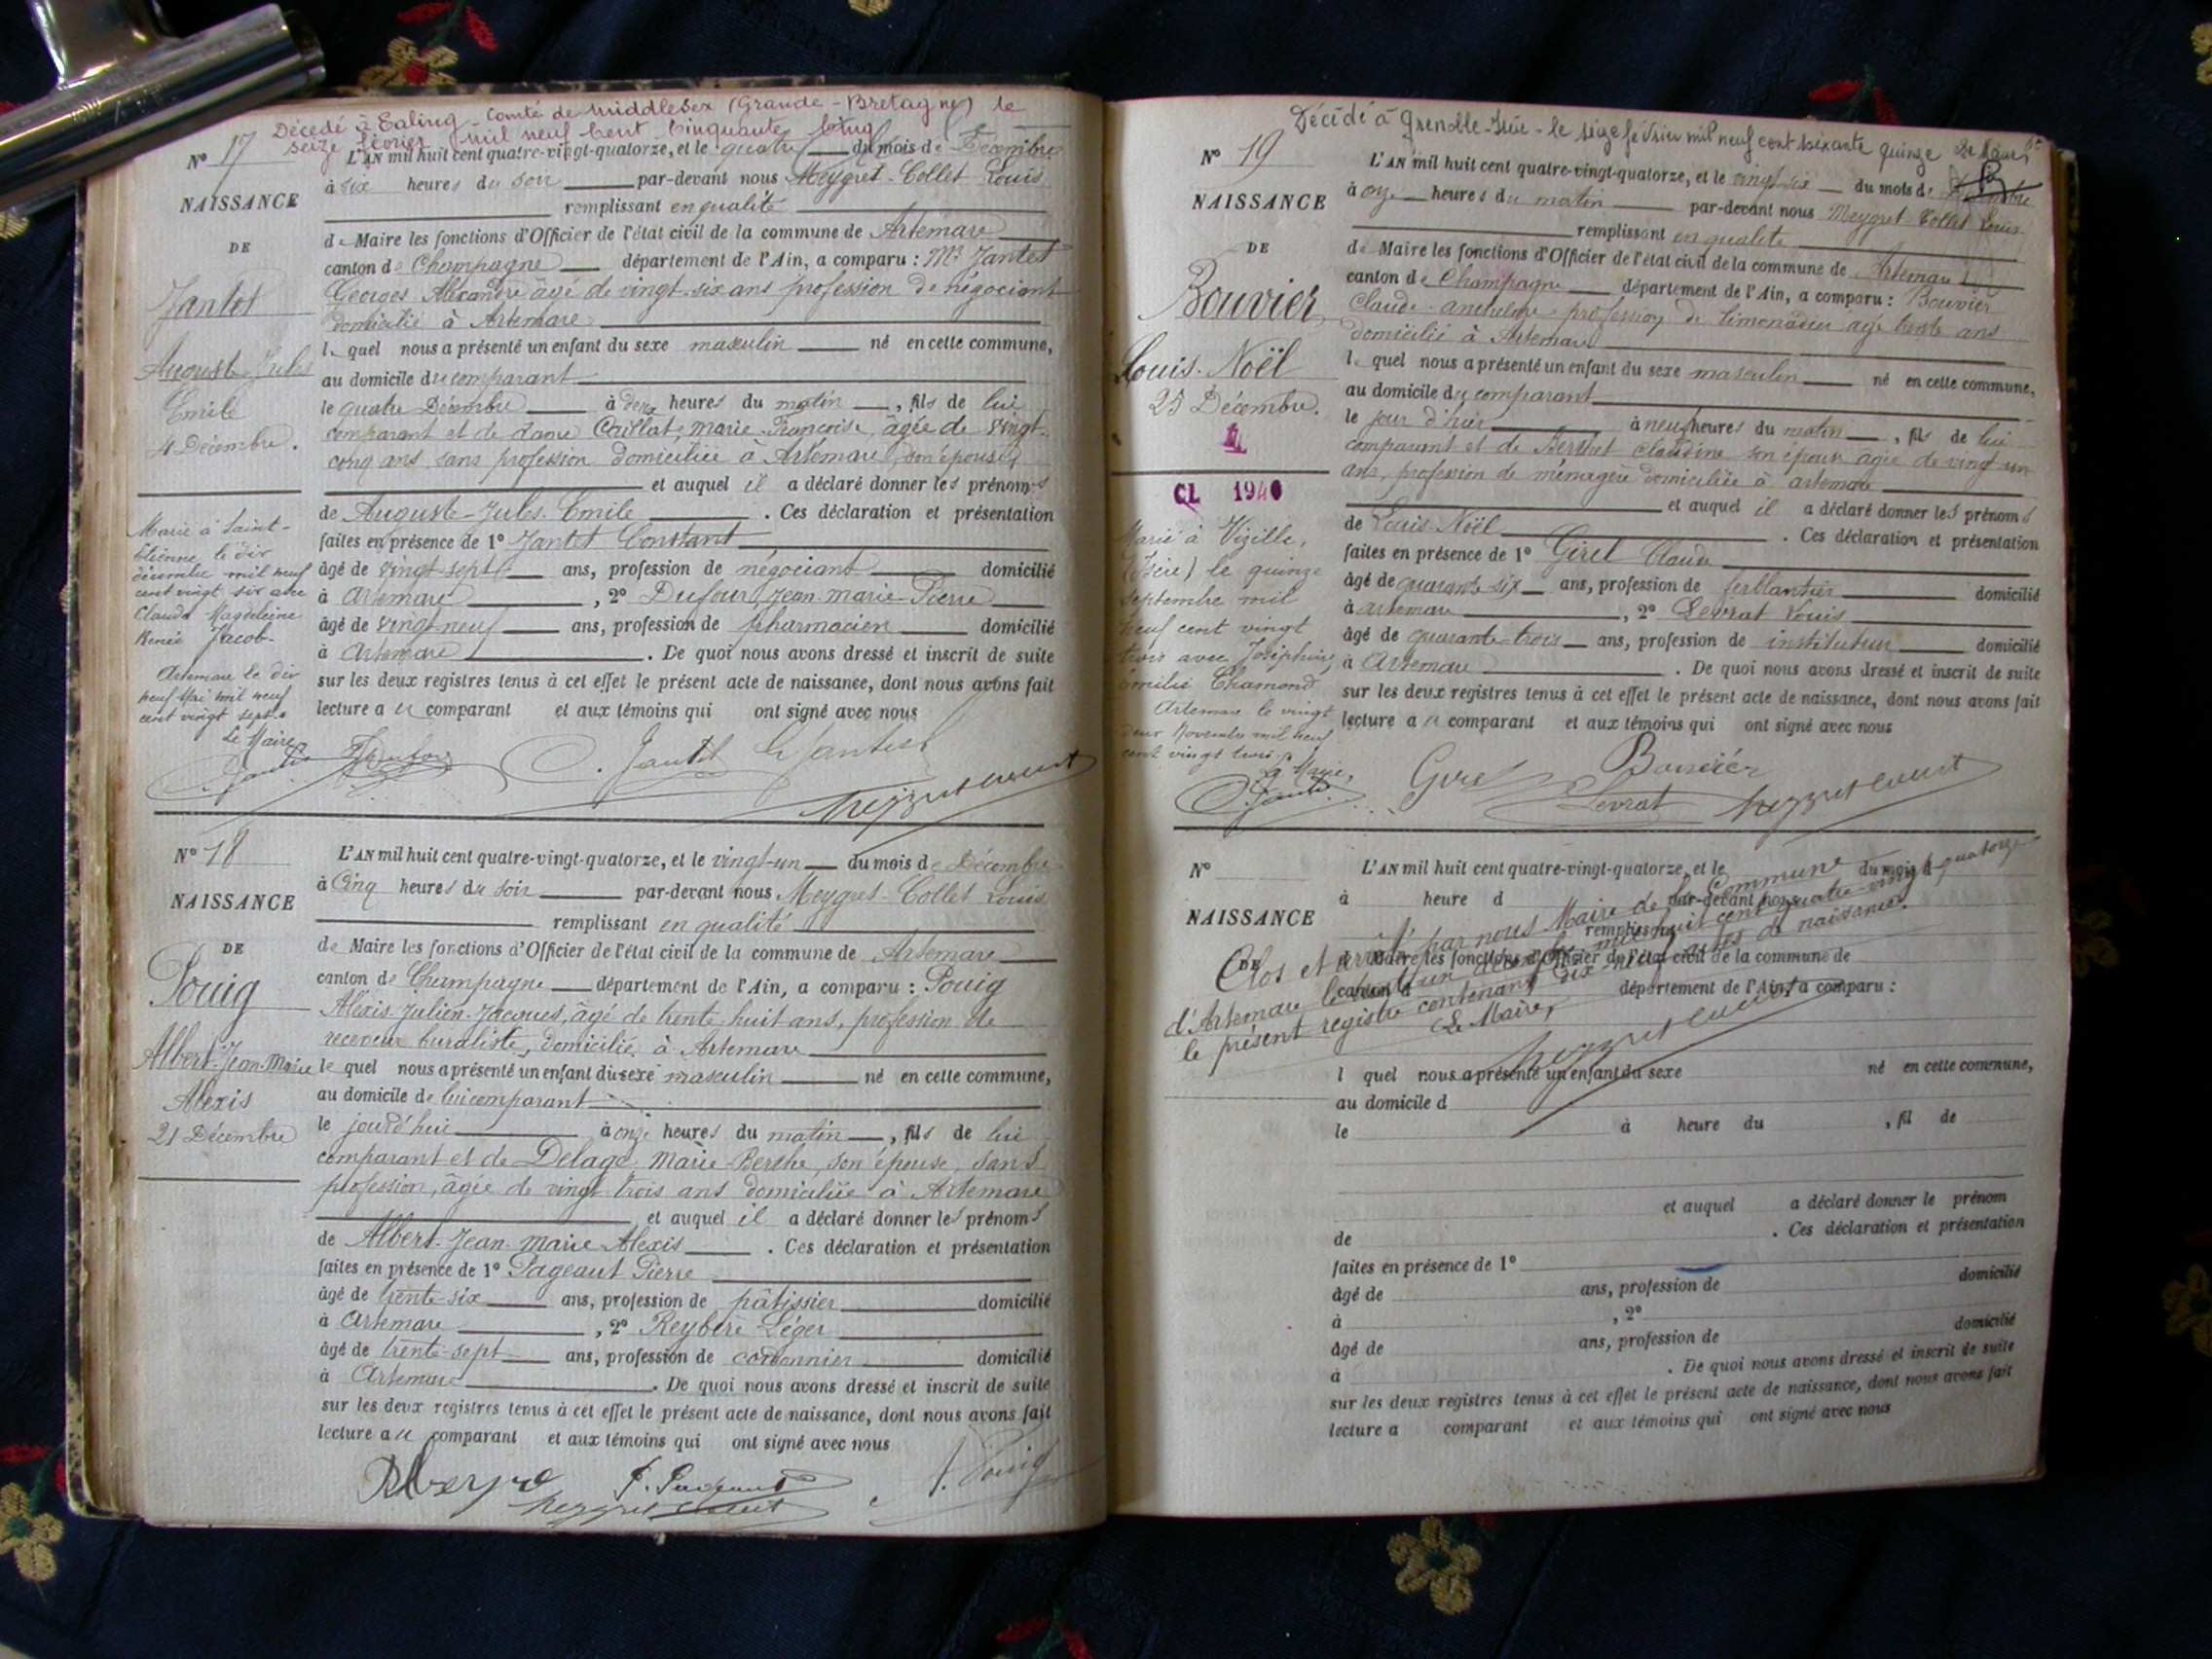 Décédé à Ealing - Comté de Middlesex (Grande-Bretagne) le
seize février mil neuf cent cinquante cinq
N° 17
NAISSANCE
DE
Jantet
Auguste Jules
Emile
4 Décembre.
Marié à Saint-
Etienne le dix
décembre mil neuf
cent vingt six avec
Claude Magdeleine
Renée Jacob.
Artemare le dix
neuf Mai mil neuf
cent vingt sept.
Le Maire
L'AN mil huit cent quatre-vingt-quatorze, et le quatre du mois de Décembre
à six heures du soir par-devant nous Meygret-Collet Louis
remplissant en qualité
de Maire les fonctions d'Officier de l'état civil de la commune de Artemare
canton de Champagne département de l'Ain, a comparu : Mr Jantet
Georges Alexandre âgé de vingt-six ans profession de négociant
domicilié à Artemare
le quel nous a présenté un enfant du sexe masculin né en cette commune,
au domicile du comparant
le quatre Décembre à deux heures du matin, fils de lui
comparant et de dame Marie Françoise, âgée de vingt-
cinq ans, sans profession domiciliée à Artemare, son épouse,
et auquel il a déclaré donner les prénoms
de Auguste-Jules-Emile. Ces déclaration et présentation
faites en présence de 1° Jantet Constant
âgé de vingt-sept ans, profession de négociant domicilié
à Artemare, 2° Dufour Jean-Marie-Pierre
âgé de vingt-neuf ans, profession de pharmacien domicilié
à Artemare. De quoi nous avons dressé et inscrit de suite
sur les deux registres tenus à cet effet le présent acte de naissance, dont nous avons fait
lecture au comparant et aux témoins qui ont signé avec nous
C. Jantet G Jantet
N° 18
NAISSANCE
DE
Pouig
Albert-Jean-Marie
Alexis
21 Décembre
L'AN mil huit cent quatre-vingt-quatorze, et le vingt-un du mois de Décembre
à Cinq heures du soir par-devant nous Meygret-Collet Louis
remplissant en qualité
de Maire les fonctions d'Officier de l'état civil de la commune de Artemare
canton de Champagne département de l'Ain, a comparu : Pouig
Alexis-Julien-Jacques, âgé de trente huit ans, profession de
receveur buraliste, domicilié à Artemare
le quel nous a présenté un enfant du sexe masculin né en cette commune,
au domicile de lui comparant
le jourd'hui à onze heures du matin, fils de lui
comparant et de Delage Marie-Berthe, son épouse, sans
profession, âgée de vingt trois ans domiciliée à Artemare
et auquel il a déclaré donner les prénoms
de Albert-Jean-Marie Alexis. Ces déclaration et présentation
faites en présence de 1° Pageaut Pierre
âgé de trente-six ans, profession de pâtissier domicilié
à Artemare, 2° Reybère Léger
âgé de trente-sept ans, profession de cordonnier domicilié
à Artemare. De quoi nous avons dressé et inscrit de suite
sur les deux registres tenus à cet effet le présent acte de naissance, dont nous avons fait
lecture au comparant et aux témoins qui ont signé avec nous
A. Pouig
Décédé à Grenoble-Isère - le seize février mil neuf cent soixante quinze Le Maire,
N° 19
NAISSANCE
DE
Bouvier
Louis-Noël
25 Décembre.
CL 1940
Marié à Vizille,
(Isère) le quinze
septembre mil
neuf cent vingt
trois avec Joséphine
Emilie Chamond
Artemare le vingt
deux Novembre mil neuf
cent vingt trois
Le Maire,
L'AN mil huit cent quatre-vingt-quatorze, et le vingt-six du mois de Décembre
à onze heures du matin par-devant nous Meygret-Collet Louis
remplissant en qualité
de Maire les fonctions d'Officier de l'état civil de la commune de Artemare
canton de Champagne département de l'Ain, a comparu : Bouvier
Claude-anthelme profession de limonadier âgé trente ans
domicilié à Artemare
le quel nous a présenté un enfant du sexe masculin né en cette commune,
au domicile du comparant
le jour d'hier à neuf heures du matin, fils de lui
comparant et de Berthet Claudine son épouse âgée de vingt-un
ans, profession de ménagère domiciliée à artemare
et auquel il a déclaré donner les prénoms
de Louis-Noël. Ces déclaration et présentation
faites en présence de 1° Girel Claude
âgé de quarante-six ans, profession de ferblantier domicilié
à artemare, 2° Levrat Louis
âgé de quarante-trois ans, profession de instituteur domicilié
à Artemare. De quoi nous avons dressé et inscrit de suite
sur les deux registres tenus à cet effet le présent acte de naissance, dont nous avons fait
lecture au comparant et aux témoins qui ont signé avec nous
Bouvier
Girel Levrat
N°
NAISSANCE
DE
L'AN mil huit cent quatre-vingt-quatorze, et le du mois d
à heure d par-devant nous
remplissant
d Maire les fonctions d'Officier de l'état civil de la commune de
canton d département de l'Ain, a comparu :
Clos et arrêté par nous Maire de la Commune
d'Artemare le trente un décembre mil huit cent quatre-vingt-quatorze
le présent registre contenant dix-neuf actes de naissance.
Le Maire,
l quel nous a présenté un enfant du sexe né en cette commune,
au domicile d
le à heure du , fil de
et auquel a déclaré donner le prénom
de . Ces déclaration et présentation
faites en présence de 1°
âgé de ans, profession de domicilié
à , 2°
âgé de ans, profession de domicilié
à . De quoi nous avons dressé et inscrit de suite
sur les deux registres tenus à cet effet le présent acte de naissance, dont nous avons fait
lecture a comparant et aux témoins qui ont signé avec nous